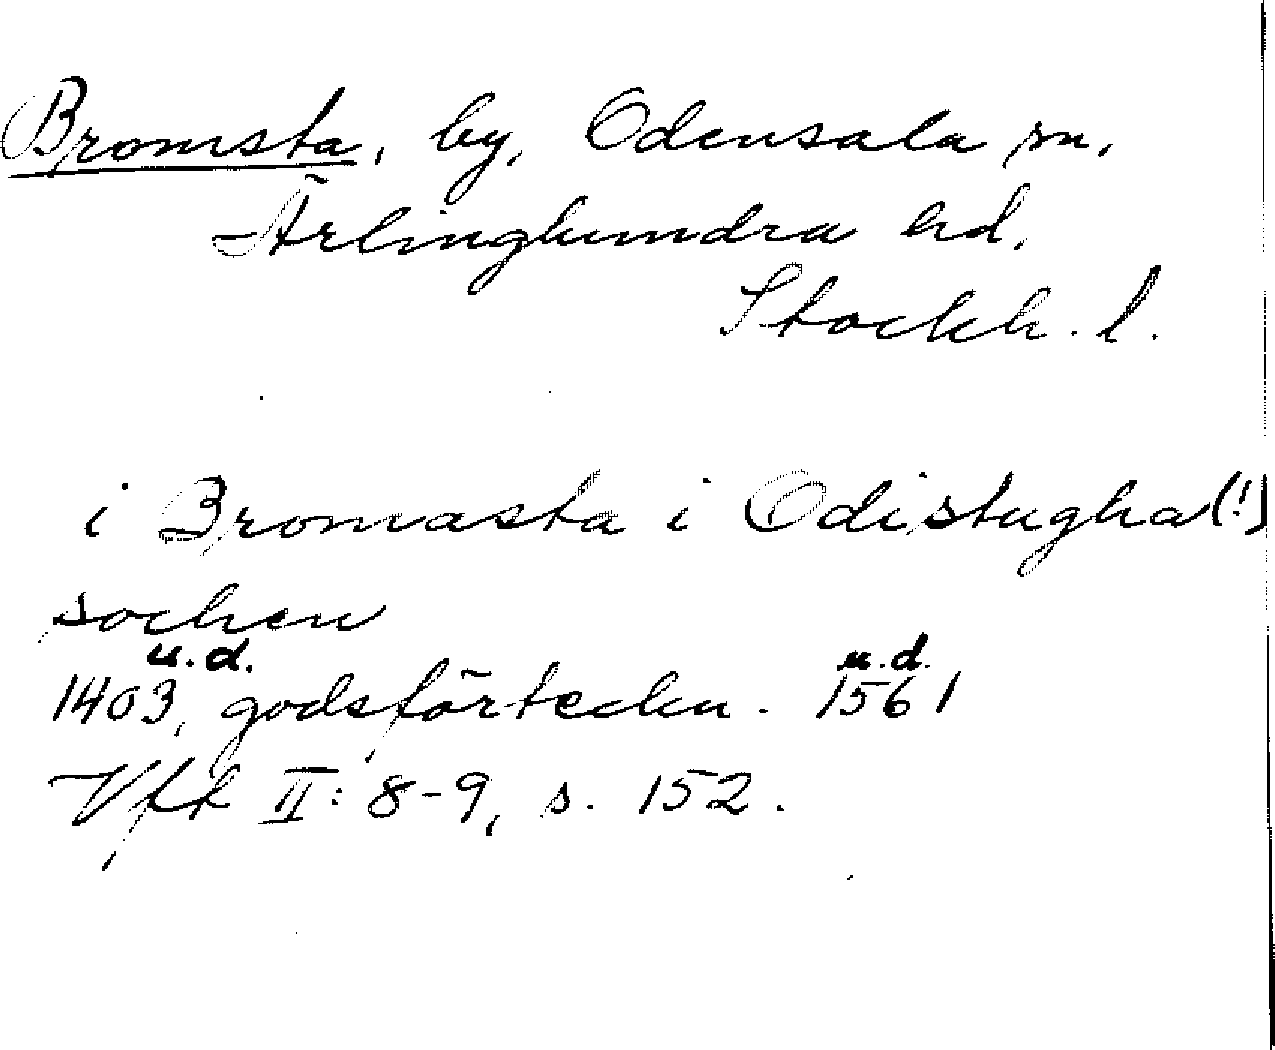 Bromsta, by, Odensala sn,
Ärlinghundra hd,
Stockh. l.
i Bromasta i Odistugha (!)
sochen
u.d. u.d.
1403, godsförteckn. 1561
Vfk II: 8-9, s. 152.